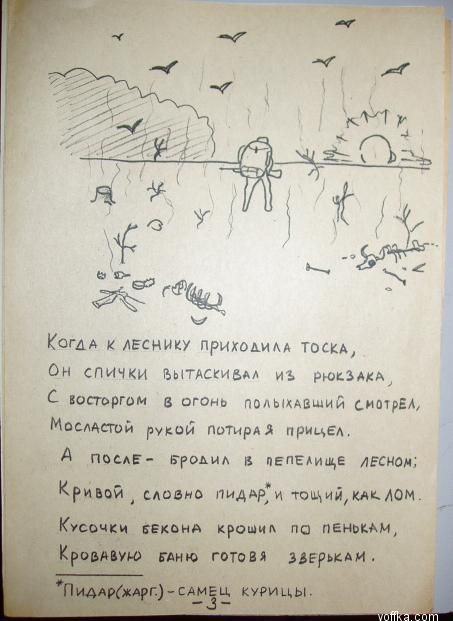 Когда к леснику приходила тоска,
Он спички вытаскивал из рюкзака,
С восторгом в огонь полыхавший смотрел,
Мосластой рукой потирая прицел.
А после - бродил в пепелище лесном;
Кривой, словно пидар,* и тощий, как лом.
Кусочки бекона крошил по пенькам,
Кровавую баню готовя зверькам.
*Пидар(жарг.) - самец курицы.
-3-
yoffka.com